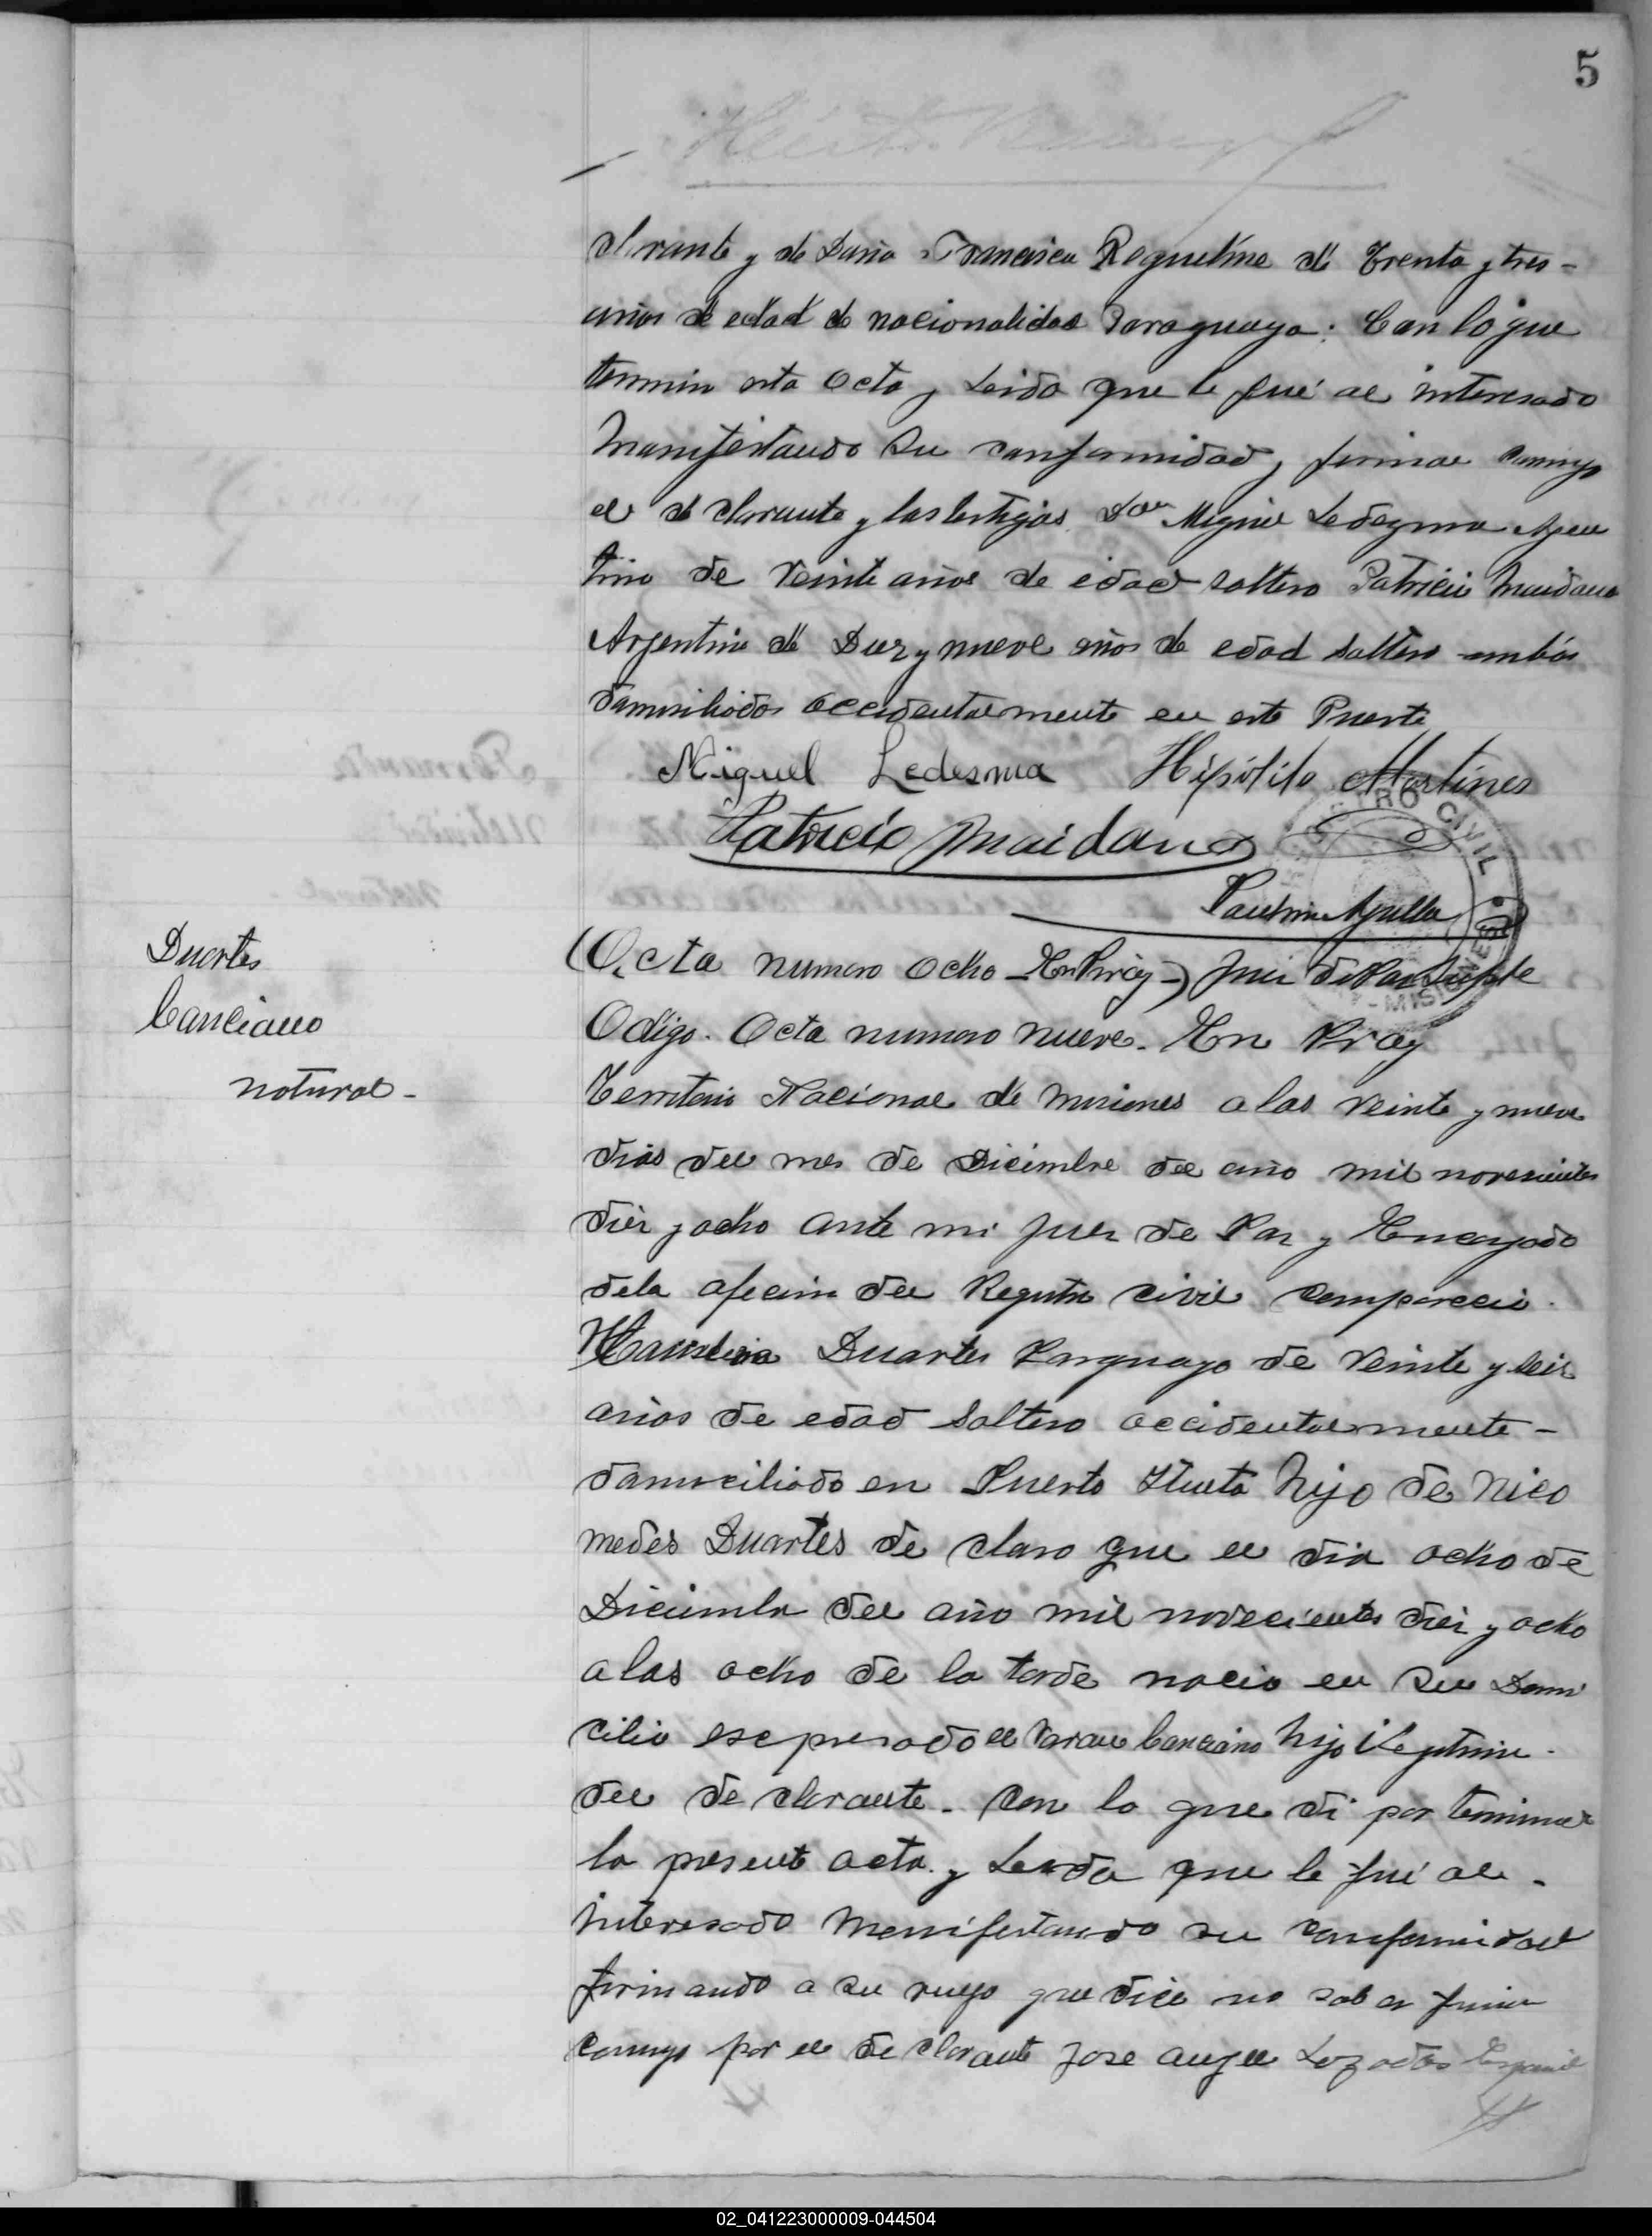 5
clarante y de Doña Francisca Reguelme de Trenta y tres -
años de edad de nacionalidad Paraguaya: Con lo que
termin esta Octa y Leida que le fué al interesado
Manifestando Su conformidad y firmar conmigo
el de clarante y los testigos Don Miguel Ledezma Argen
tino de Veinte años de edad soltero Patricio Maidana
Argentino de Diez y nueve años de edad Soltero ambos
domiciliados occidentalmente en este Puerto
Miguel Ledesma Hipólito Martines
Patricio Maidana
REGISTRO CIVIL
MISIONES
Duartes
Canciano
natural -
(Octa numero Ocho - En Piray -) Juez de Paz Suplte
Odigo. Octa numero nueve. En Piray
Territorio Nacional de Misiones a los Veinte y nueve
dias del mes de Diciembre del año mil novecientos
diez y ocho ante mi Juez de Paz y Encargado
dela oficina del Registro civil comparecio.
Duartes Parguayo de Veinte y seis
años de edad Soltero occidentalmente -
domiciliado en Puerto hijo de Nico
medes Duartes de claro que el dia ocho de
Diciembre del año mil novecientos diez y ocho
a las ocho de la tarde nacio en su Domi
cilio esepresado el Varon Canciano hijo ilegitimo.
del de clarante. Con lo que di por terminar
la presente acta. y Leida que le fué al.
interesado Manifestando su conformidad
firmando a su ruego que dice no saber firmar
conmigo por el de clarante Jose Angel Lozadas Español
02_041223000009-044504